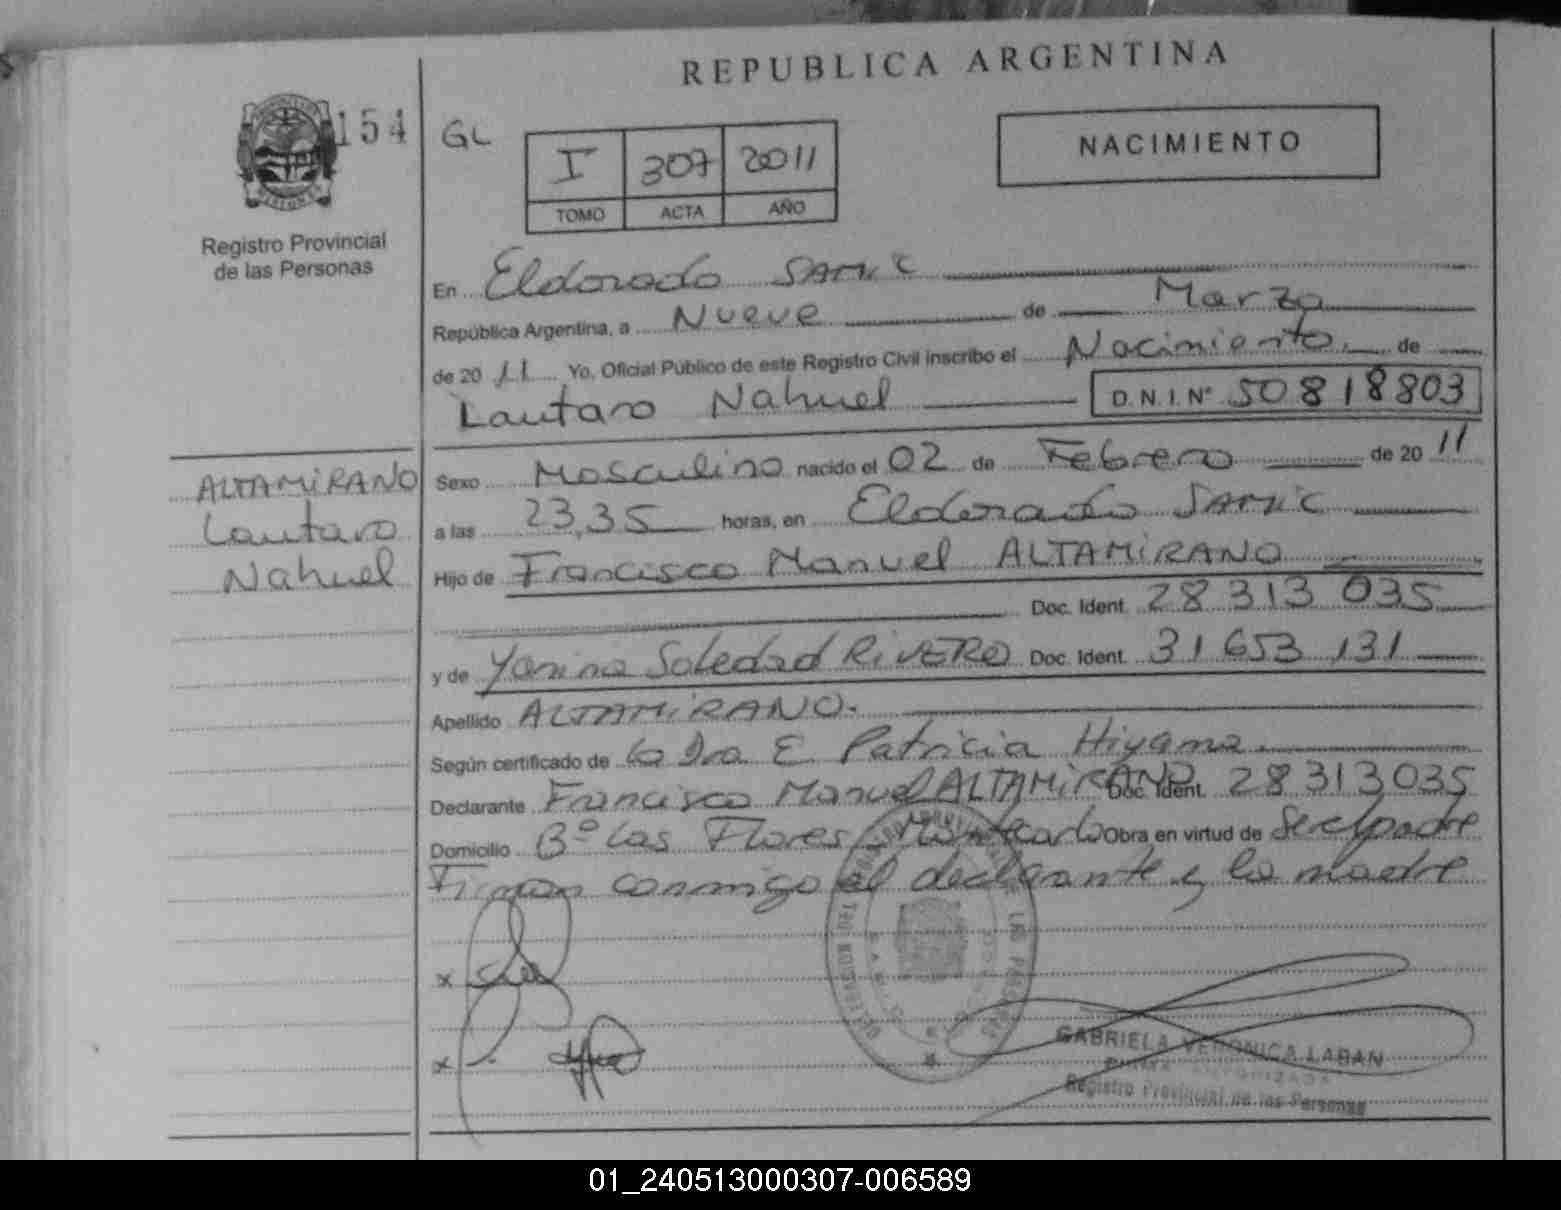 REPUBLICA ARGENTINA
154
GL
I 307 2011
TOMO ACTA AÑO
NACIMIENTO
Registro Provincial
de las Personas
En Eldorado SAMIC
República Argentina, a Nueve de Marzo
de 20 11 Yo, Oficial Público de este Registro Civil inscribo el Nacimiento de
Lautaro Nahuel D.N.I. Nº 50818803
ALTAMIRANO
Lautaro
Nahuel
Sexo Masculino nacido el 02 de Febrero de 20 11
a las 23,35 horas, en Eldorado SAMIC
Hijo de Francisco Manuel ALTAMIRANO
Doc. Ident. 28 313 035
y de Yanina Soledad RIVERO Doc. Ident. 31 653 131
Apellido ALTAMIRANO.
Según certificado de la Dra E Patricia Hiyama
Declarante Francisco Manuel ALTAMIRANO Doc. Ident. 28313035
Domicilio Bº Las Flores, Montecarlo Obra en virtud de Ser el padre
Firman conmigo el declarante y la madre
x
x
GABRIELA VERONICA LABAN
Registro Provincial de las Personas
01_240513000307-006589